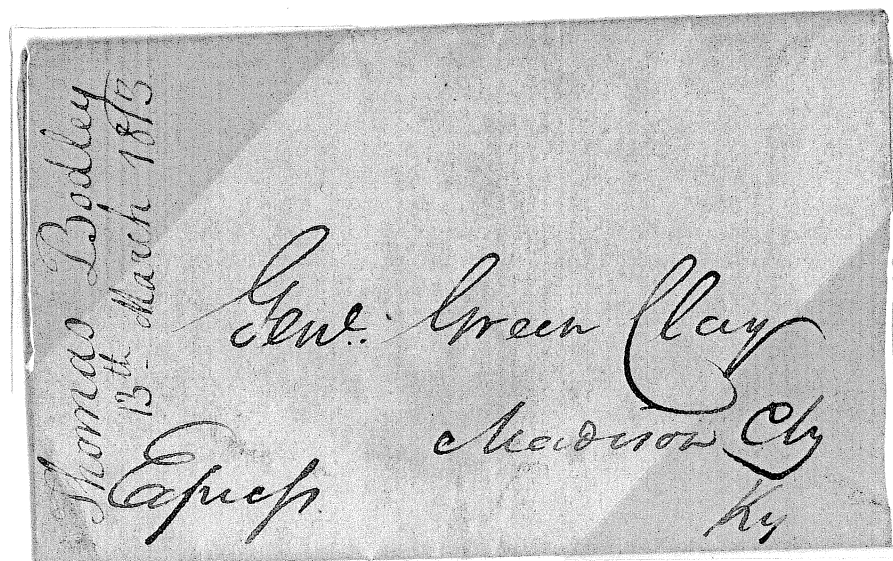 Thomas Bodley
13th March 1813
Genl. Green Clay
Madison Cty
Ky
Express